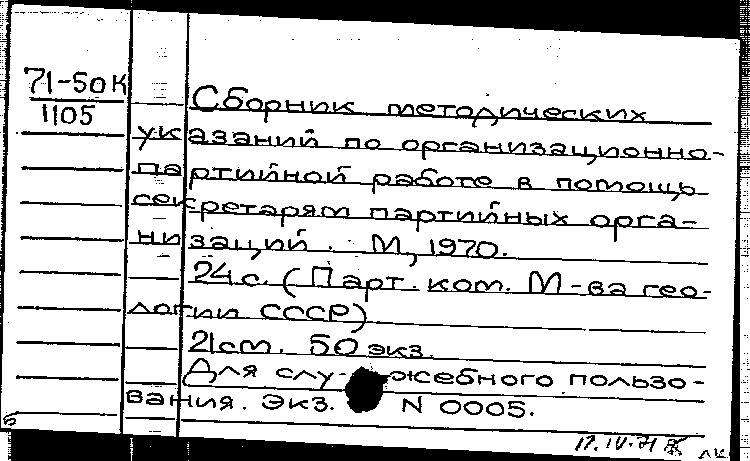 71-50К
1105
Сборник методических
указаний по организационно-
партийной работе в помощь
секретарям партийных орга-
низаций. М, 1970.
24с. (Парт. ком. М-ва гео-
логии СССР)
21см. 50 экз.
Для слу-жебного пользо-
вания. Экз. N 0005.
б
17.IV.71